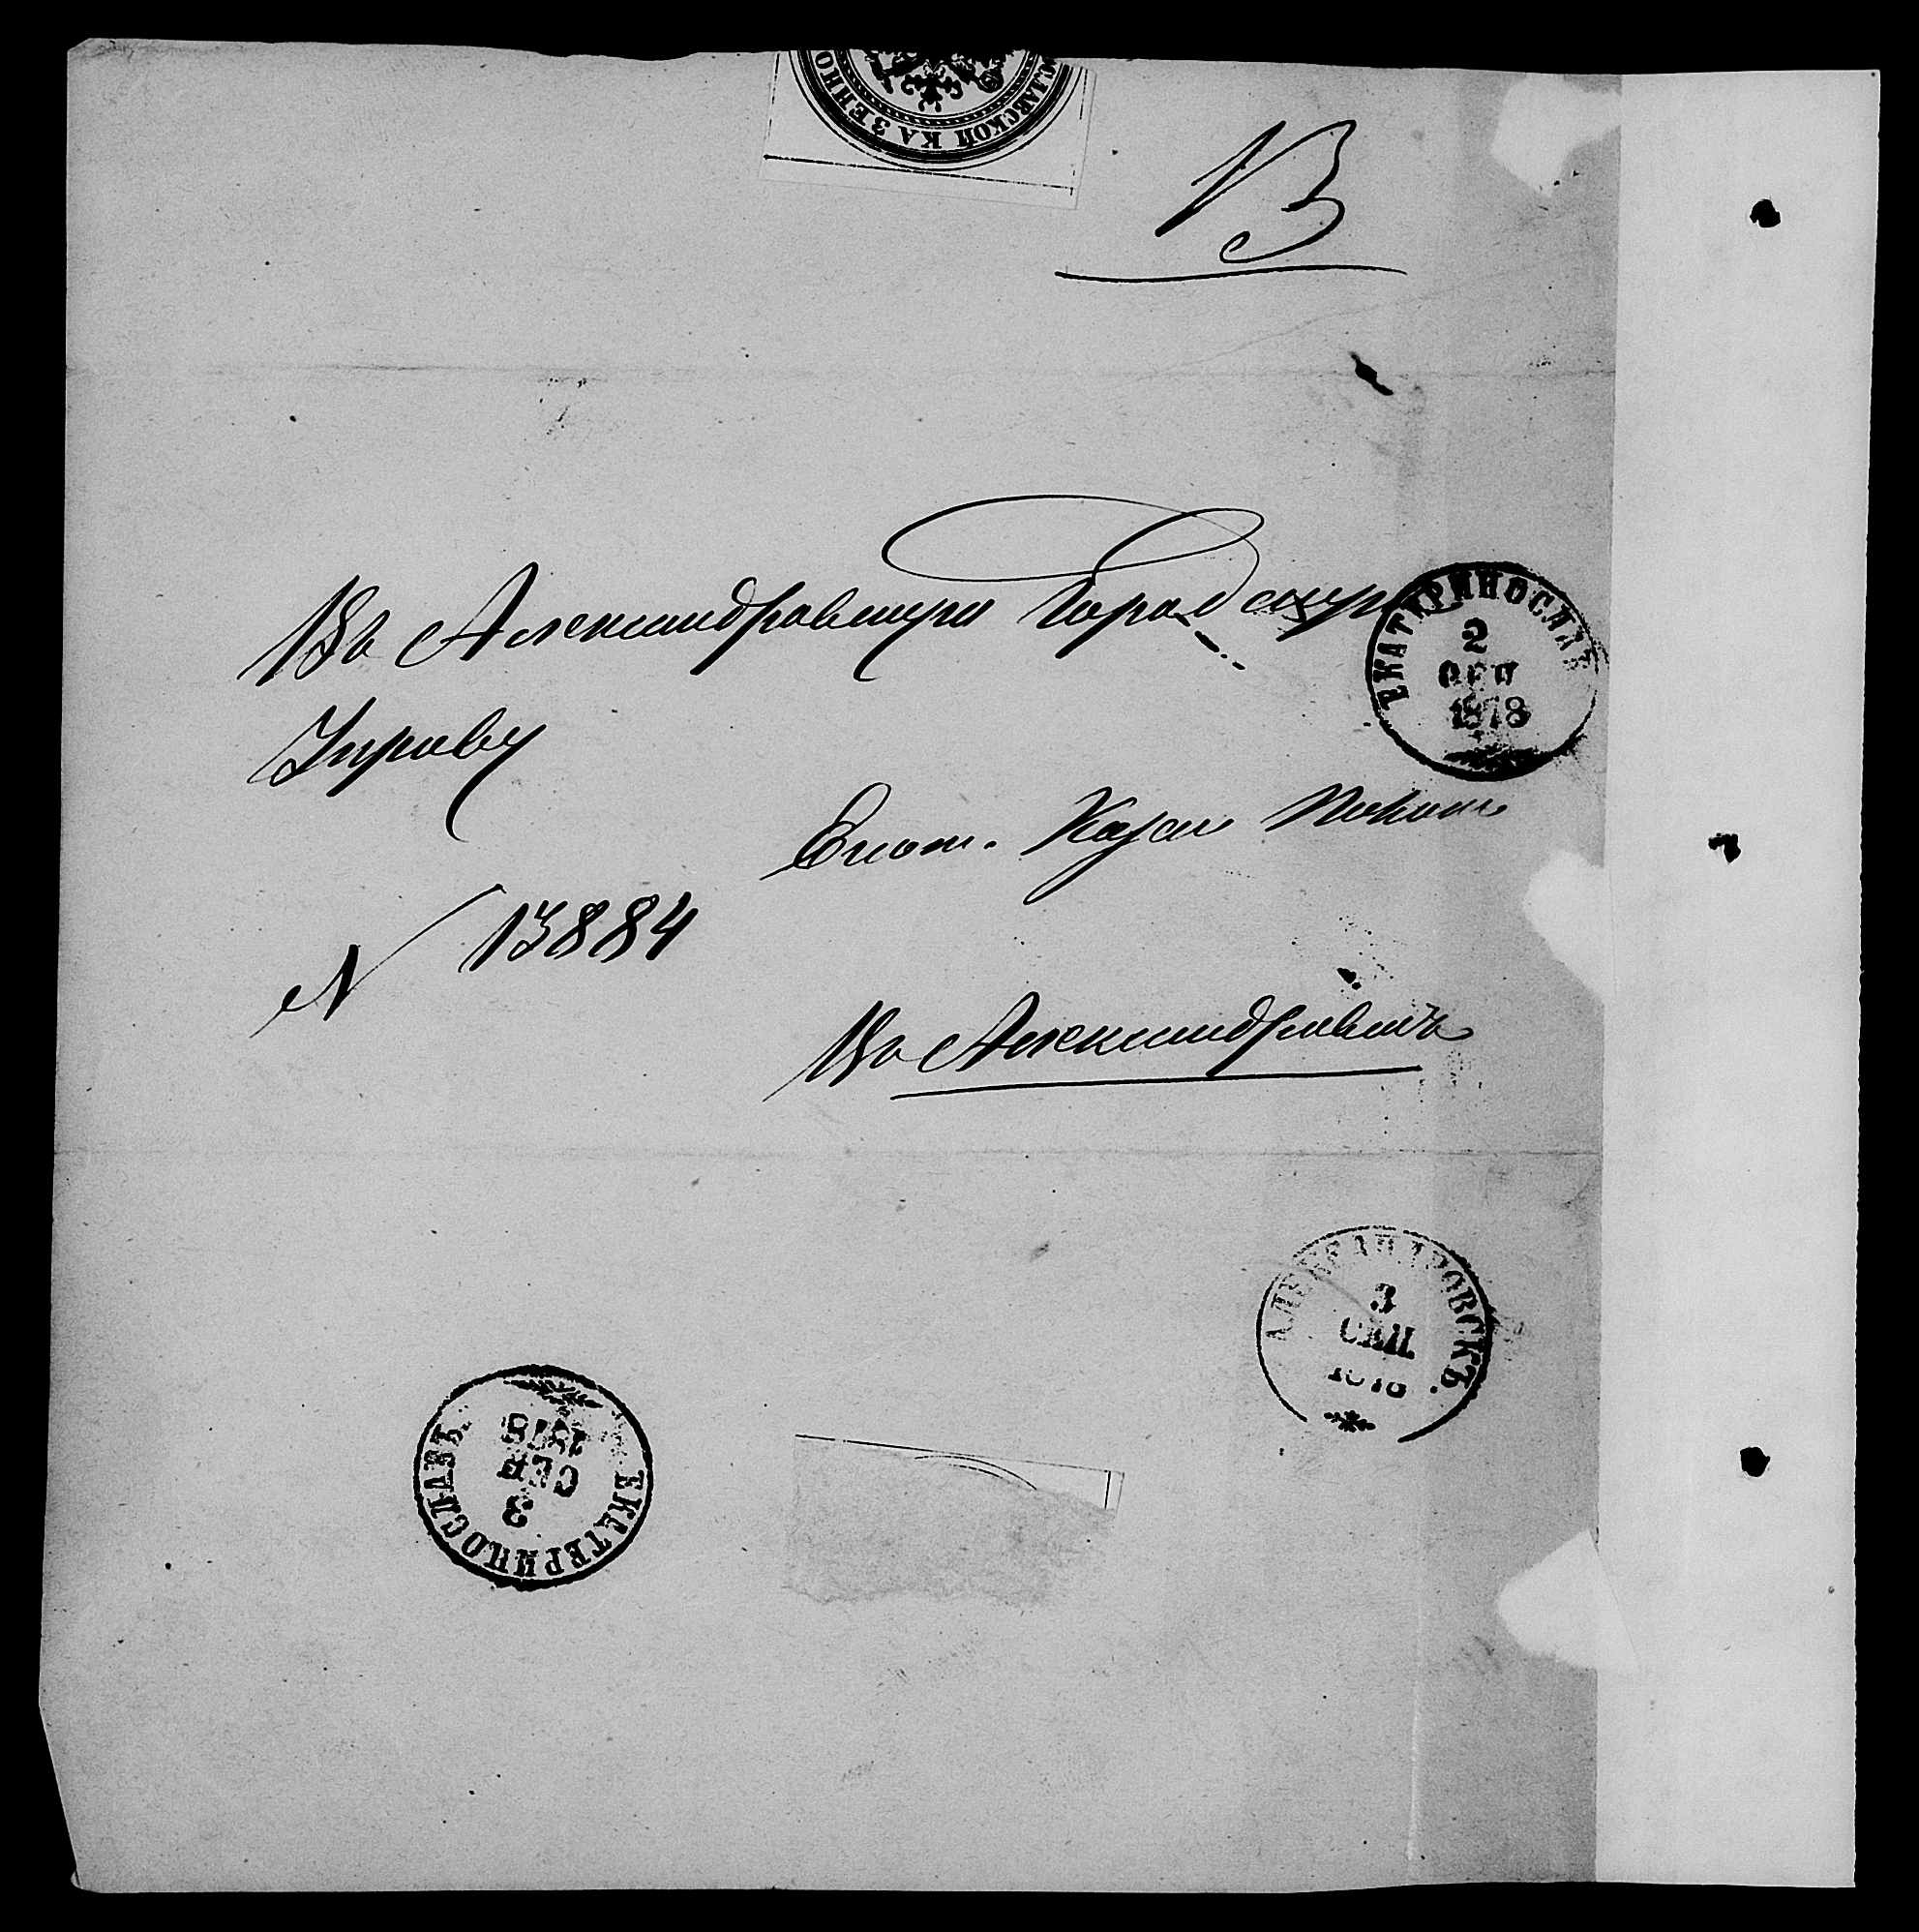 ОСЛАВСКОЙ КАЗЕННО
В
Въ Александровскую Городскую
Управу
ЕКАТЕРИНОСЛАВЪ
2
СЕН
1878
Екат. Казен Палат
N 13884
Въ Александровскъ
АЛЕКСАНДРОВСКЪ.
3
СЕН.
1878
ЕКАТЕРИНОСЛАВЪ
3
СЕН
1878